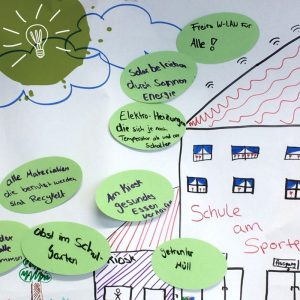 Freies W-LAN für
Alle!
Solarbeleuchtung
durch Sonnen
Energie
Elektro-Heizungen
die sich je nach
Temperatur ab und an
Schalten
alle Materialien
die benutzt werden
sind Recycelt
Am Kiosk
gesundes
Essen
verkaufen
Schule
am
Sportp
obst im Schul
Garten
getrennter
Müll
KIOSK